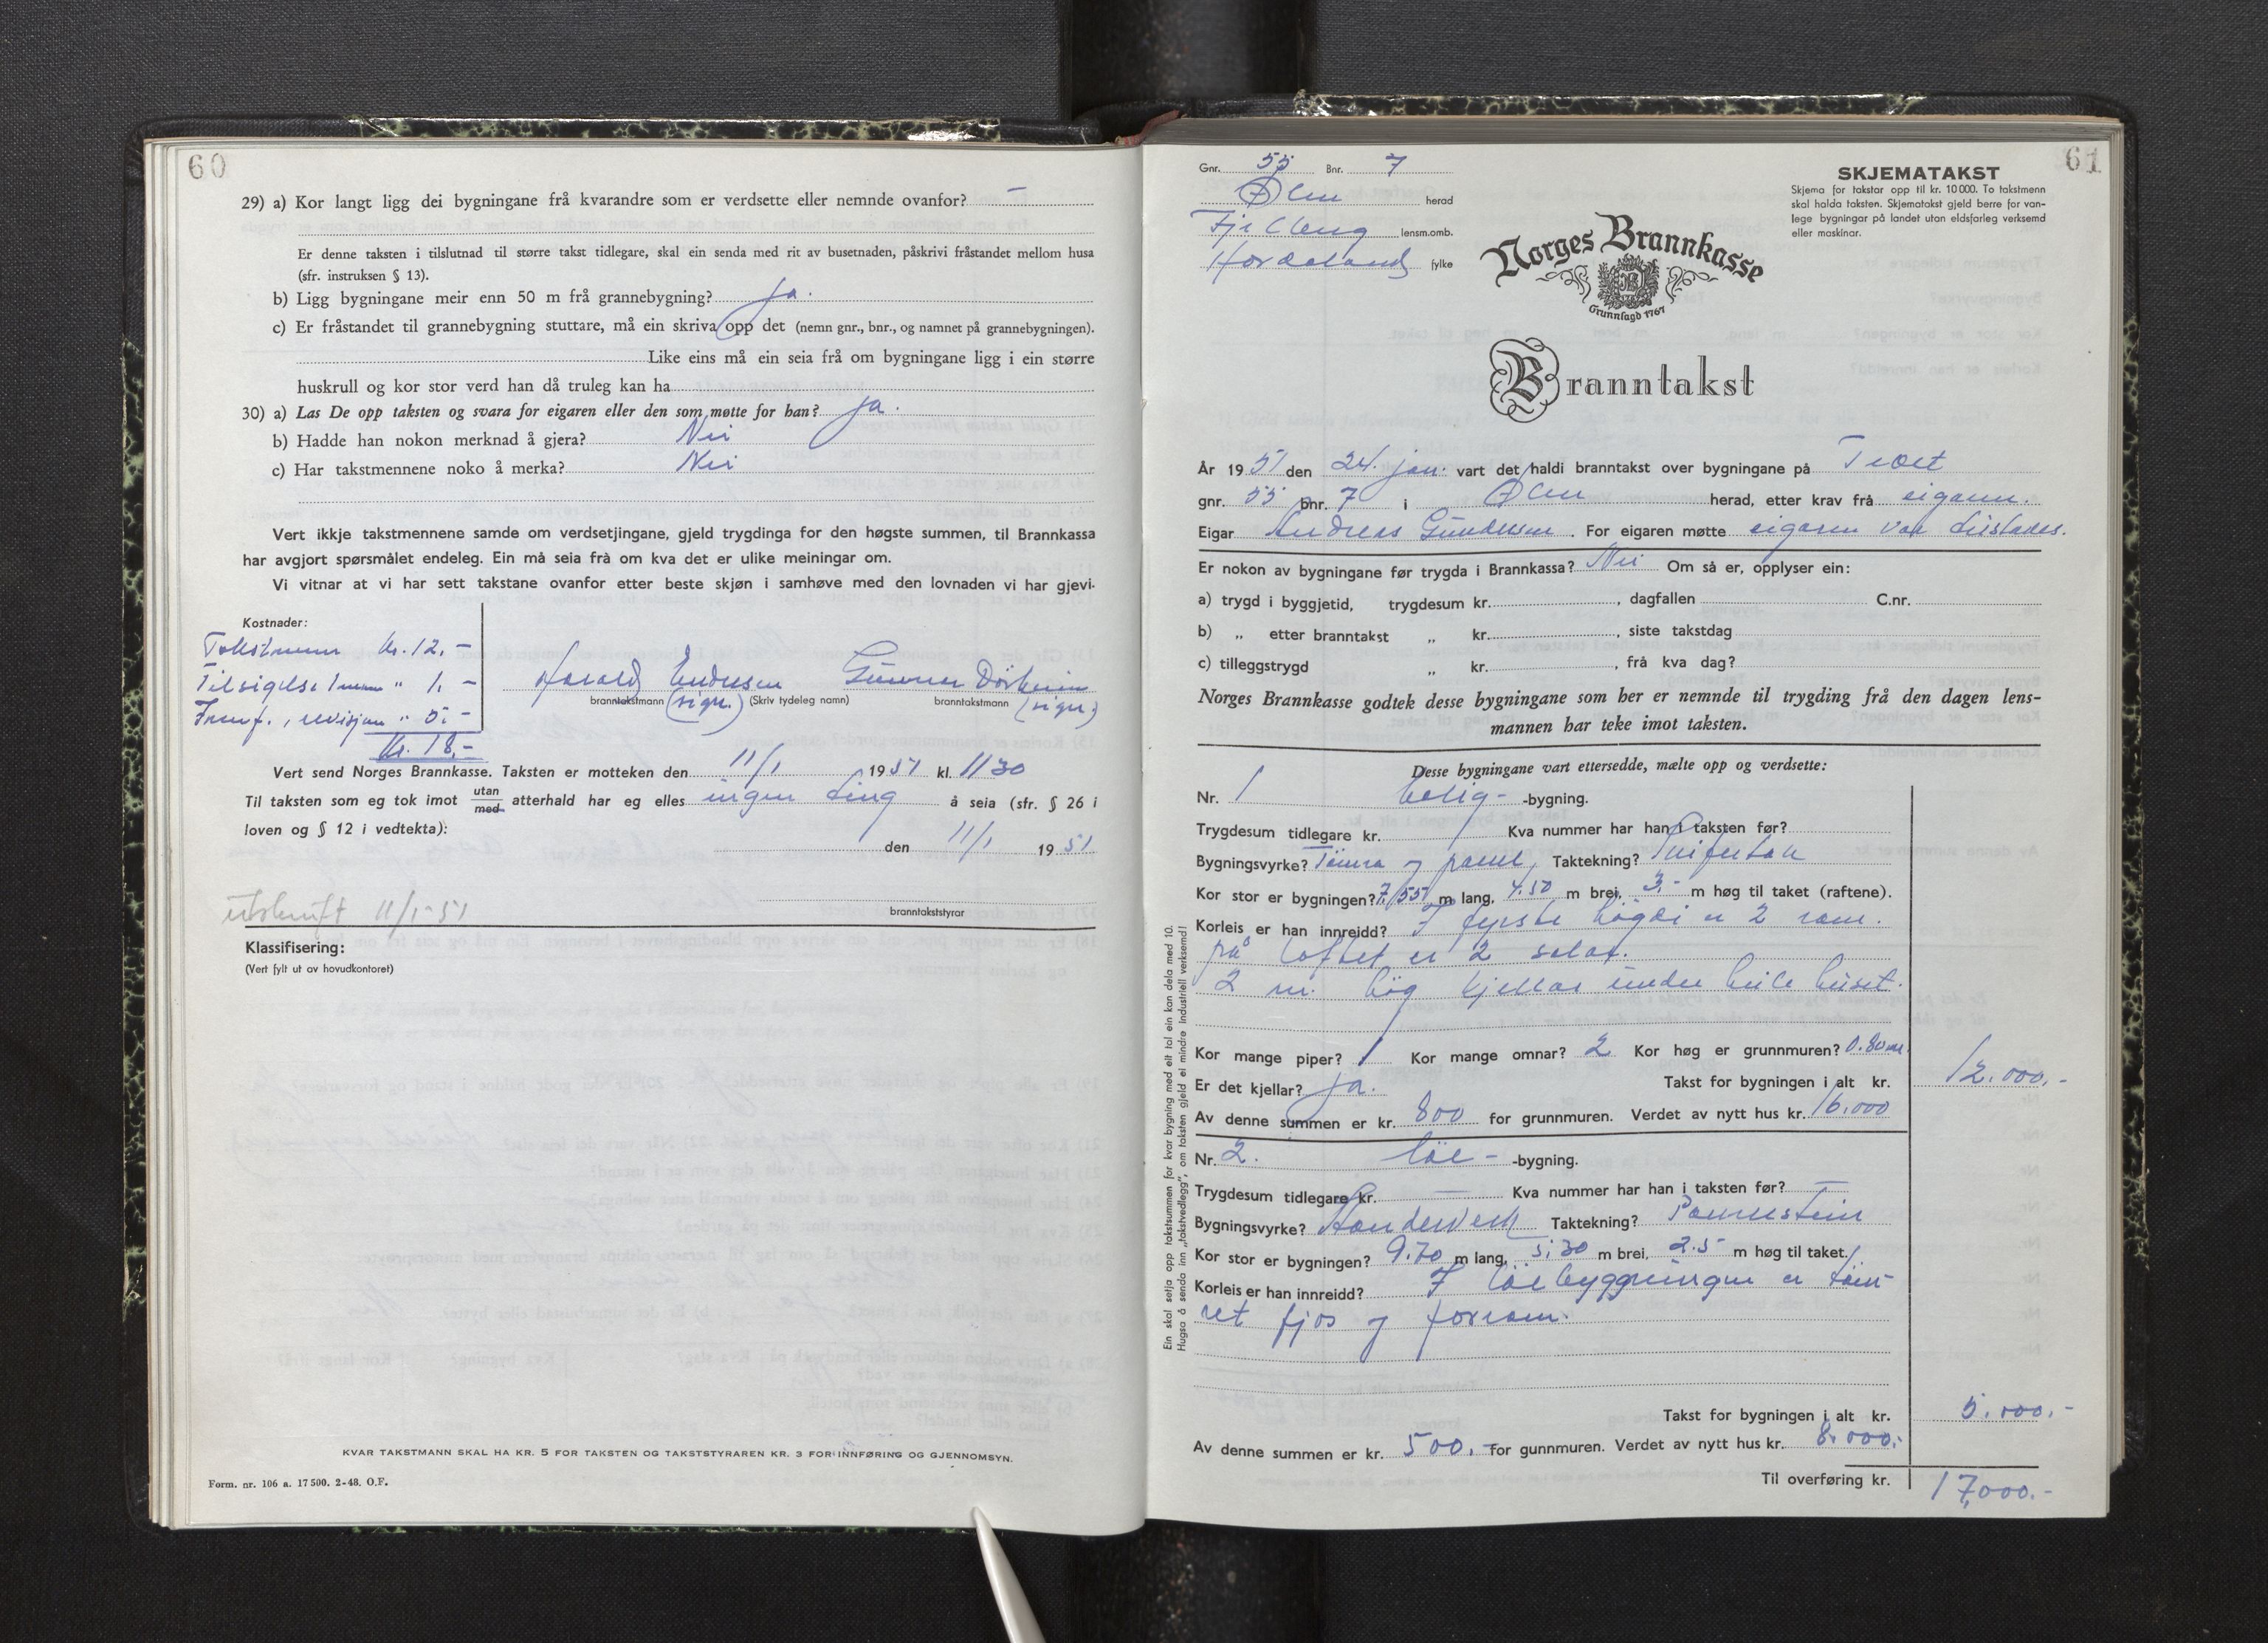 60
29) a) Kor langt ligg dei bygningane frå kvarandre som er verdsette eller nemnde ovanfor? —
Er denne taksten i tilslutnad til større takst tidlegare, skal ein senda med rit av busetnaden, påskrivi fråstandet mellom husa
(sfr. instruksen § 13).
b) Ligg bygningane meir enn 50 m frå grannebygning? ja.
c) Er fråstandet til grannebygning stuttare, må ein skriva opp det (nemn gnr., bnr., og namnet på grannebygningen).
Like eins må ein seia frå om bygningane ligg i ein større
huskrull og kor stor verd han då truleg kan ha
30) a) Las De opp taksten og svara for eigaren eller den som møtte for han? ja.
b) Hadde han nokon merknad å gjera? Nei
c) Har takstmennene noko å merka? Nei
Vert ikkje takstmennene samde om verdsetjingane, gjeld trygdinga for den høgste summen, til Brannkassa
har avgjort spørsmålet endeleg. Ein må seia frà om kva det er ulike meiningar om.
Vi vitnar at vi har sett takstane ovanfor etter beste skjøn i samhøve med den lovnaden vi har gjevi.
Kostnader:
Takstmenn kr. 12.-
Tilsigelse 1 mann " 1.-
Innf., revisjon " 5.-
Kr. 18.-
Harald Endresen Gunnar Dörheim
branntakstmann (sign.) (Skriv tydeleg namn) branntakstmann (sign.)
Vert send Norges Brannkasse. Taksten er motteken den 11/1 1951 kl. 11 30
Til taksten som eg tok imot utan/med atterhald har eg elles ingen ting å seia (sfr. § 26 i
loven og § 12 i vedtekta):
den 11/1 1951
utskrift 11/1-51
branntakststyrar
Klassifisering:
(Vert fylt ut av hovudkontoret)
KVAR TAKSTMANN SKAL HA KR. 5 FOR TAKSTEN OG TAKSTSTYRAREN KR. 3 FOR INNFØRING OG GJENNOMSYN.
Form. nr. 106 a. 17500. 2-48. O.F.
61
Gnr. 55 Bnr. 7
Ølen herad
Fjelberg lensm.omb.
Hordaland fylke
SKJEMATAKST
Skjema for takstar opp til kr. 10 000. To takstmenn
skal halda taksten. Skjematakst gjeld berre for van-
lege bygningar på landet utan eldsfarleg verksemd
eller maskinar.
Norges Brannkasse
Grunnlagd 1767
Branntakst
År 1951 den 24. jan. vart det haldi branntakst over bygningane på Tveit
gnr. 55 bnr. 7 i Ølen herad, etter krav frå eigaren.
Eigar Andreas Gundersen. For eigaren møtte eigaren var tilstades.
Er nokon av bygningane før trygda i Brannkassa? Nei Om så er, opplyser ein:
a) trygd i byggjetid, trygdesum kr. , dagfallen C.nr.
b) „ etter branntakst „ kr. , siste takstdag
c) tilleggstrygd „ kr. , frå kva dag?
Norges Brannkasse godtek desse bygningane som her er nemnde til trygding frå den dagen lens-
mannen har teke imot taksten.
Desse bygningane vart ettersedde, mælte opp og verdsette:
Nr. 1 bolig- -bygning.
Trygdesum tidlegare kr. Kva nummer har han i taksten før?
Bygningsvyrke? Tömra og panel Taktekning? Skifertak
Kor stor er bygningen? 7,55 m lang, 4.50 m brei, 3.- m høg til taket (raftene).
Korleis er han innreidd? I fyrste högdi er 2 rom.
på loftet er 2 salar.
2 m. høg kjellar under heile huset.
Kor mange piper? 1 Kor mange omnar? 2 Kor høg er grunnmuren? 0.80 m.
Er det kjellar? ja. Takst for bygningen i alt kr. 12.000.-
Av denne summen er kr. 800 for grunnmuren. Verdet av nytt hus kr. 16.000
Nr. 2. löe- -bygning.
Trygdesum tidlegare kr. — Kva nummer har han i taksten før? —
Bygningsvyrke? Taktekning? Pannestein
Kor stor er bygningen? 9.70 m lang, 5,30 m brei, 2.5 m høg til taket.
Korleis er han innreidd? I löebyggningen er töm-
ret fjos og forrom.
Takst for bygningen i alt kr. 5.000.-
Av denne summen er kr. 500.- for gunnmuren. Verdet av nytt hus kr. 8.000.-
Til overføring kr. 17,000.-
Ein skal setja opp takstsummen for kvar bygning med eit tal ein kan dela med 10.
Hugsa å senda inn „takstvedlegg", om taksten gjeld ei mindre industriell verksemd!